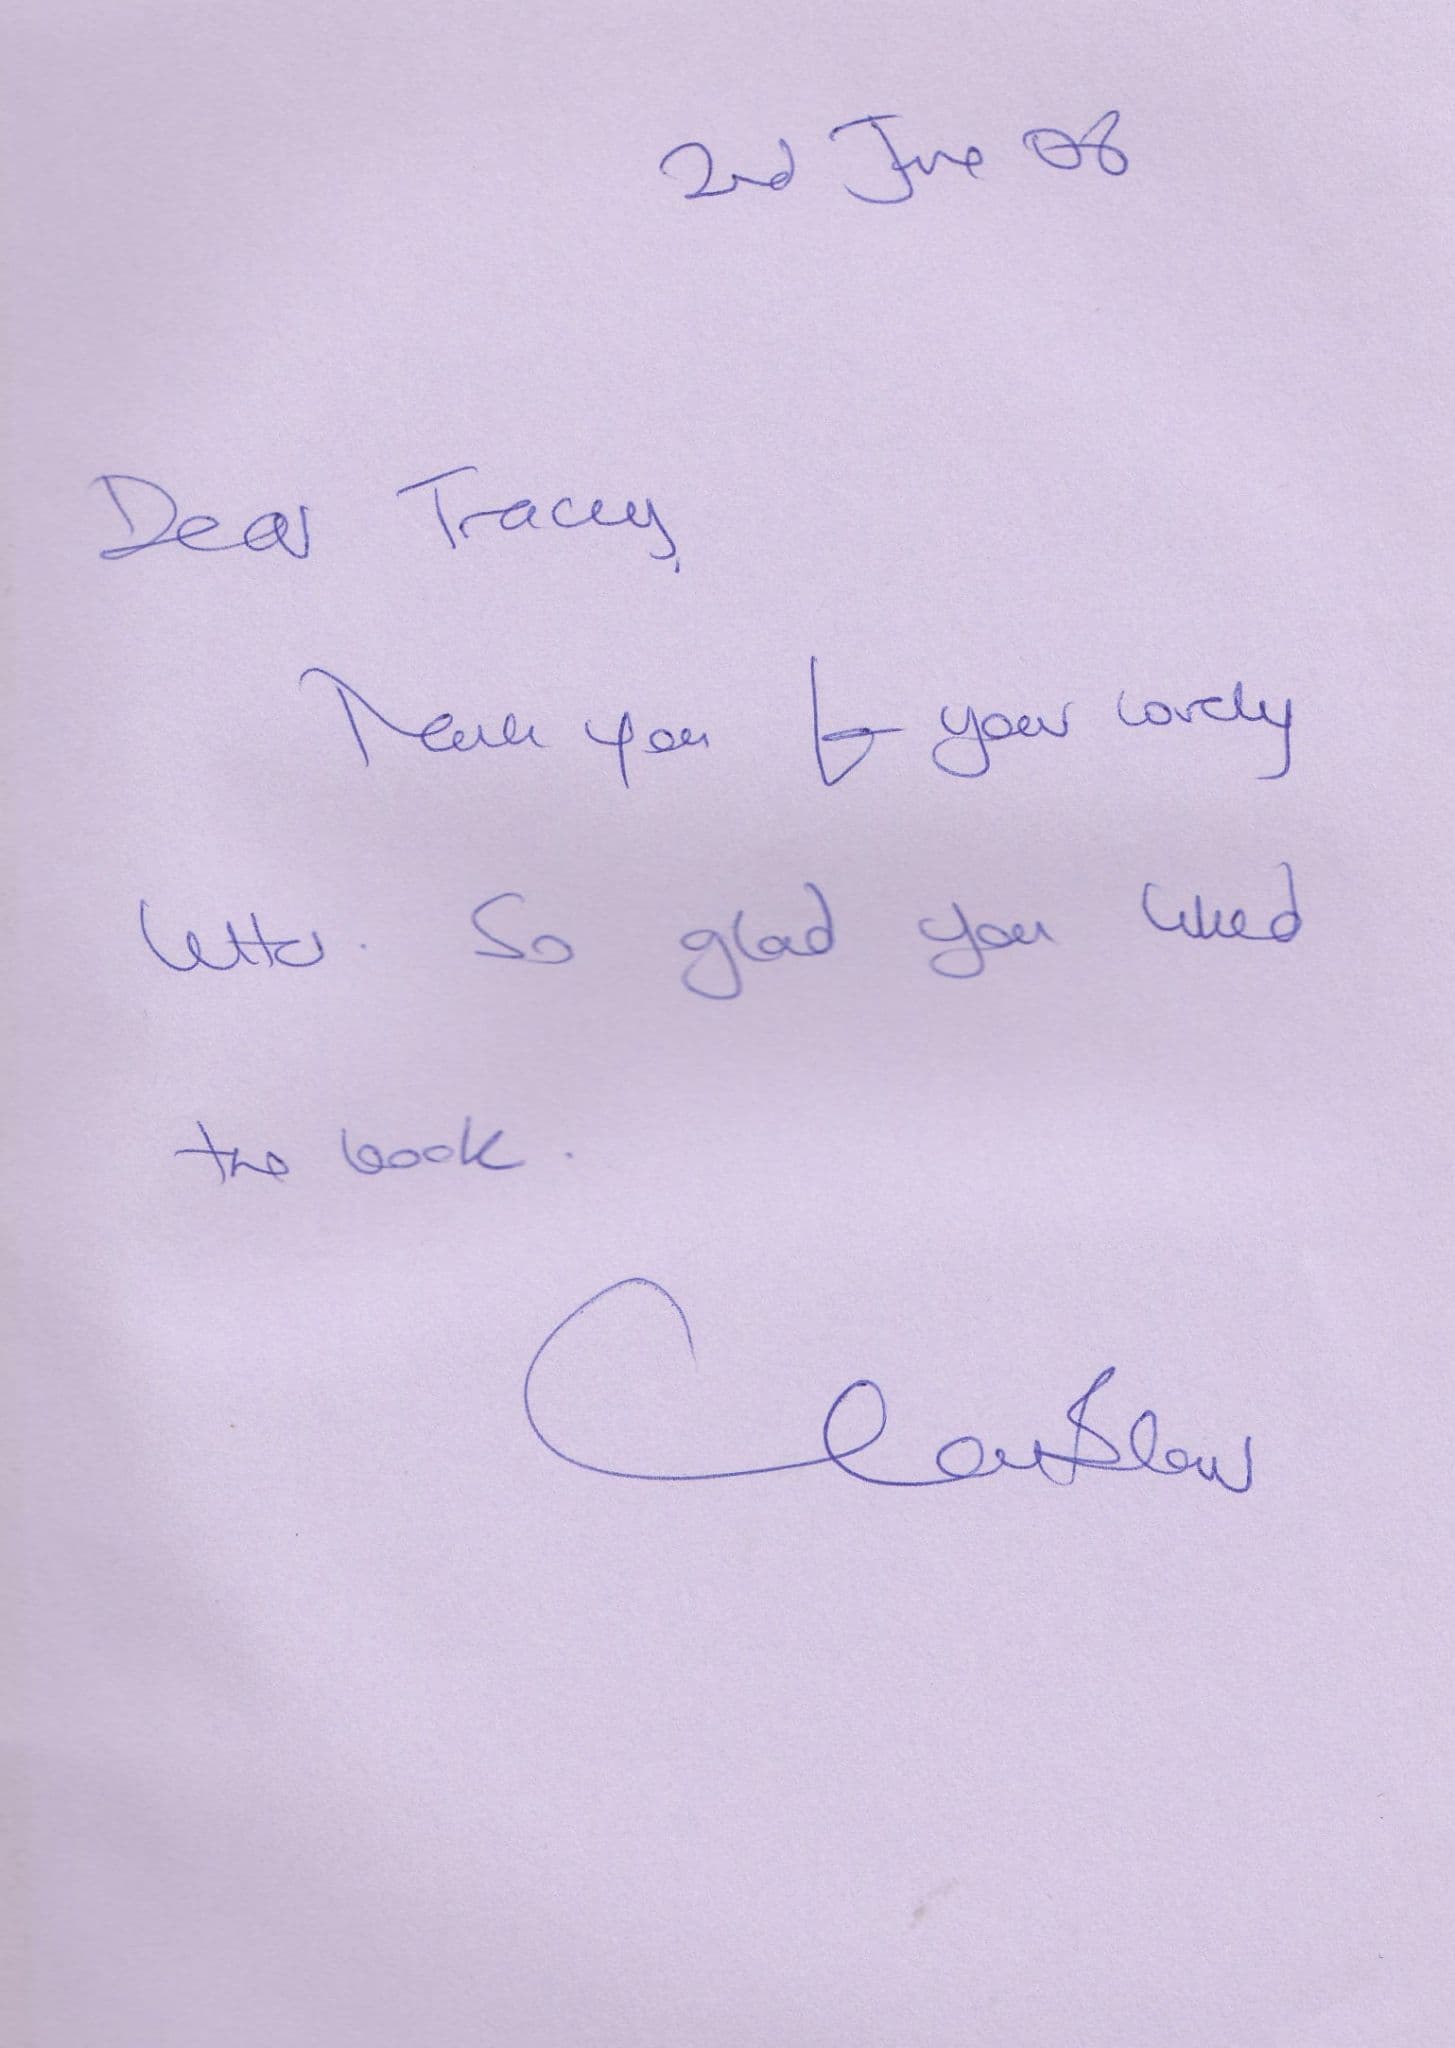 2nd June 08
Dear Tracey,
Thank you for your lovely
letter. So glad you liked
the book.